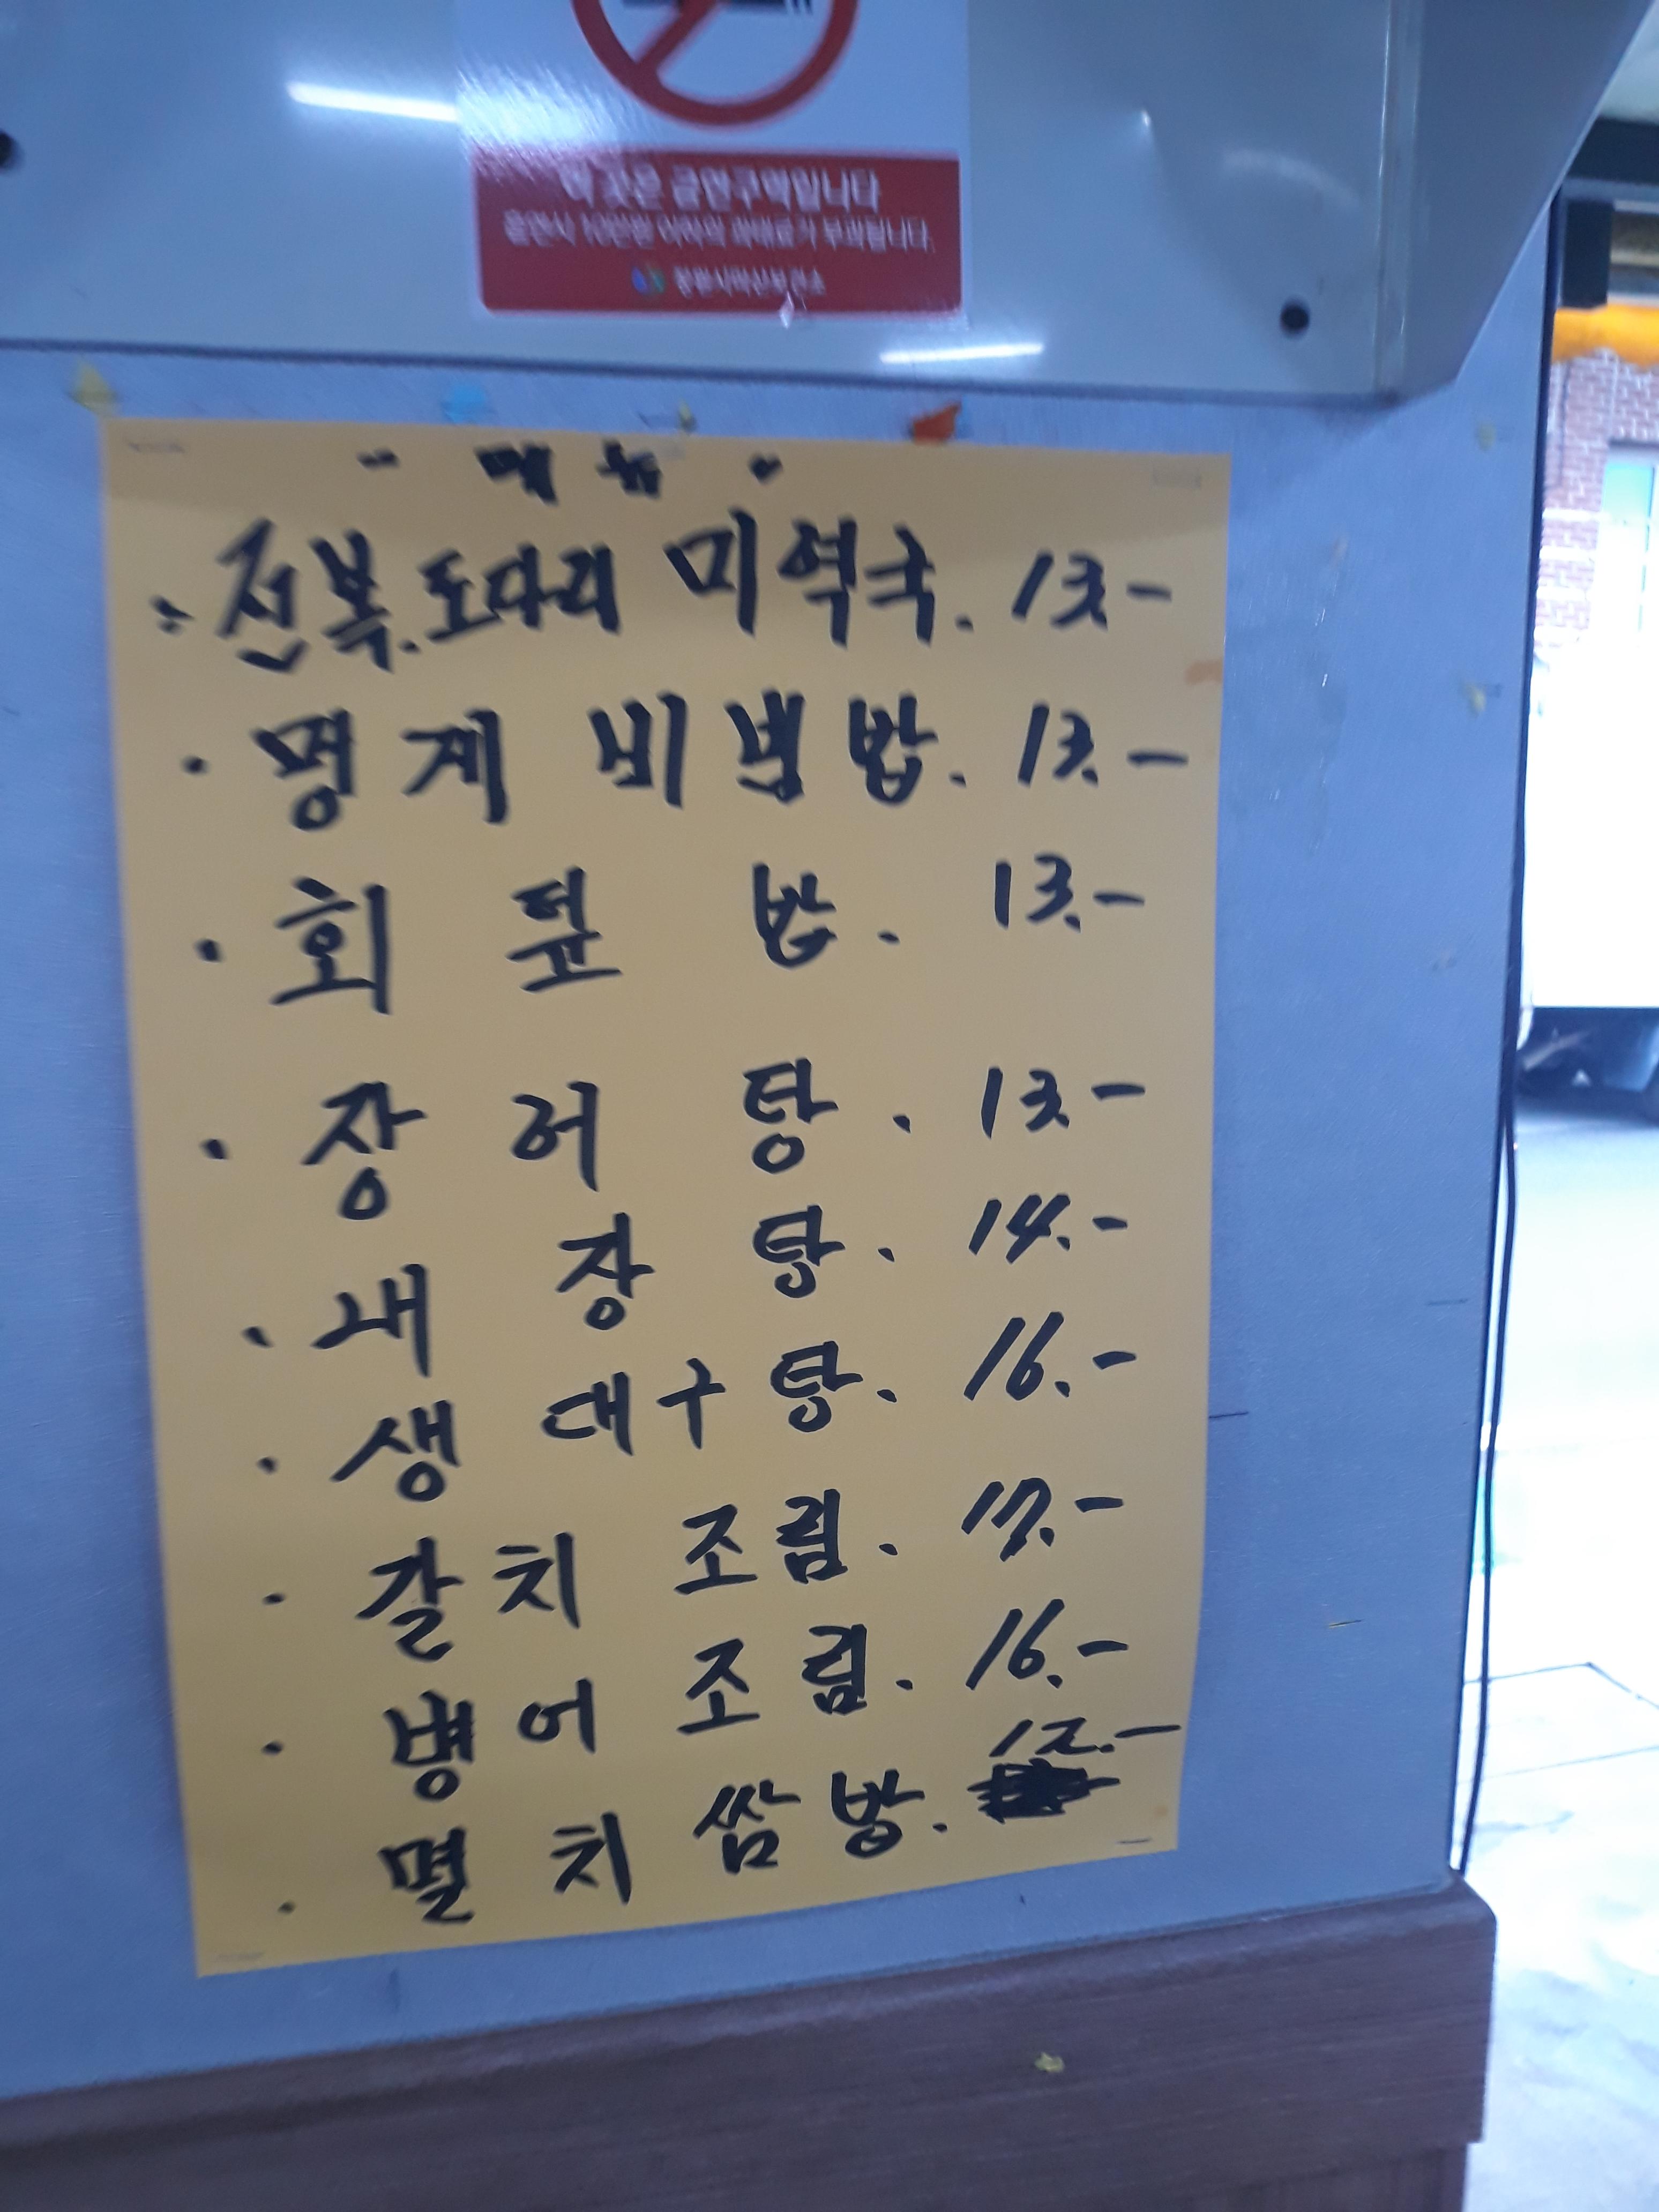 이 곳은 금연구역입니다
흡연시 10만원 이하의 과태료가 부과됩니다.
창원시마산보건소
" 메뉴 "
· 전복.도다리 미역국. 13.-
· 멍게 비빔밥. 13.-
· 회 덮 밥. 13.-
· 장 어 탕. 13.-
· 내 장 탕. 14.-
· 생 대구탕. 16.-
· 갈치 조림. 17.-
· 병어 조림. 16.-
12.-
· 멸치 쌈밥.